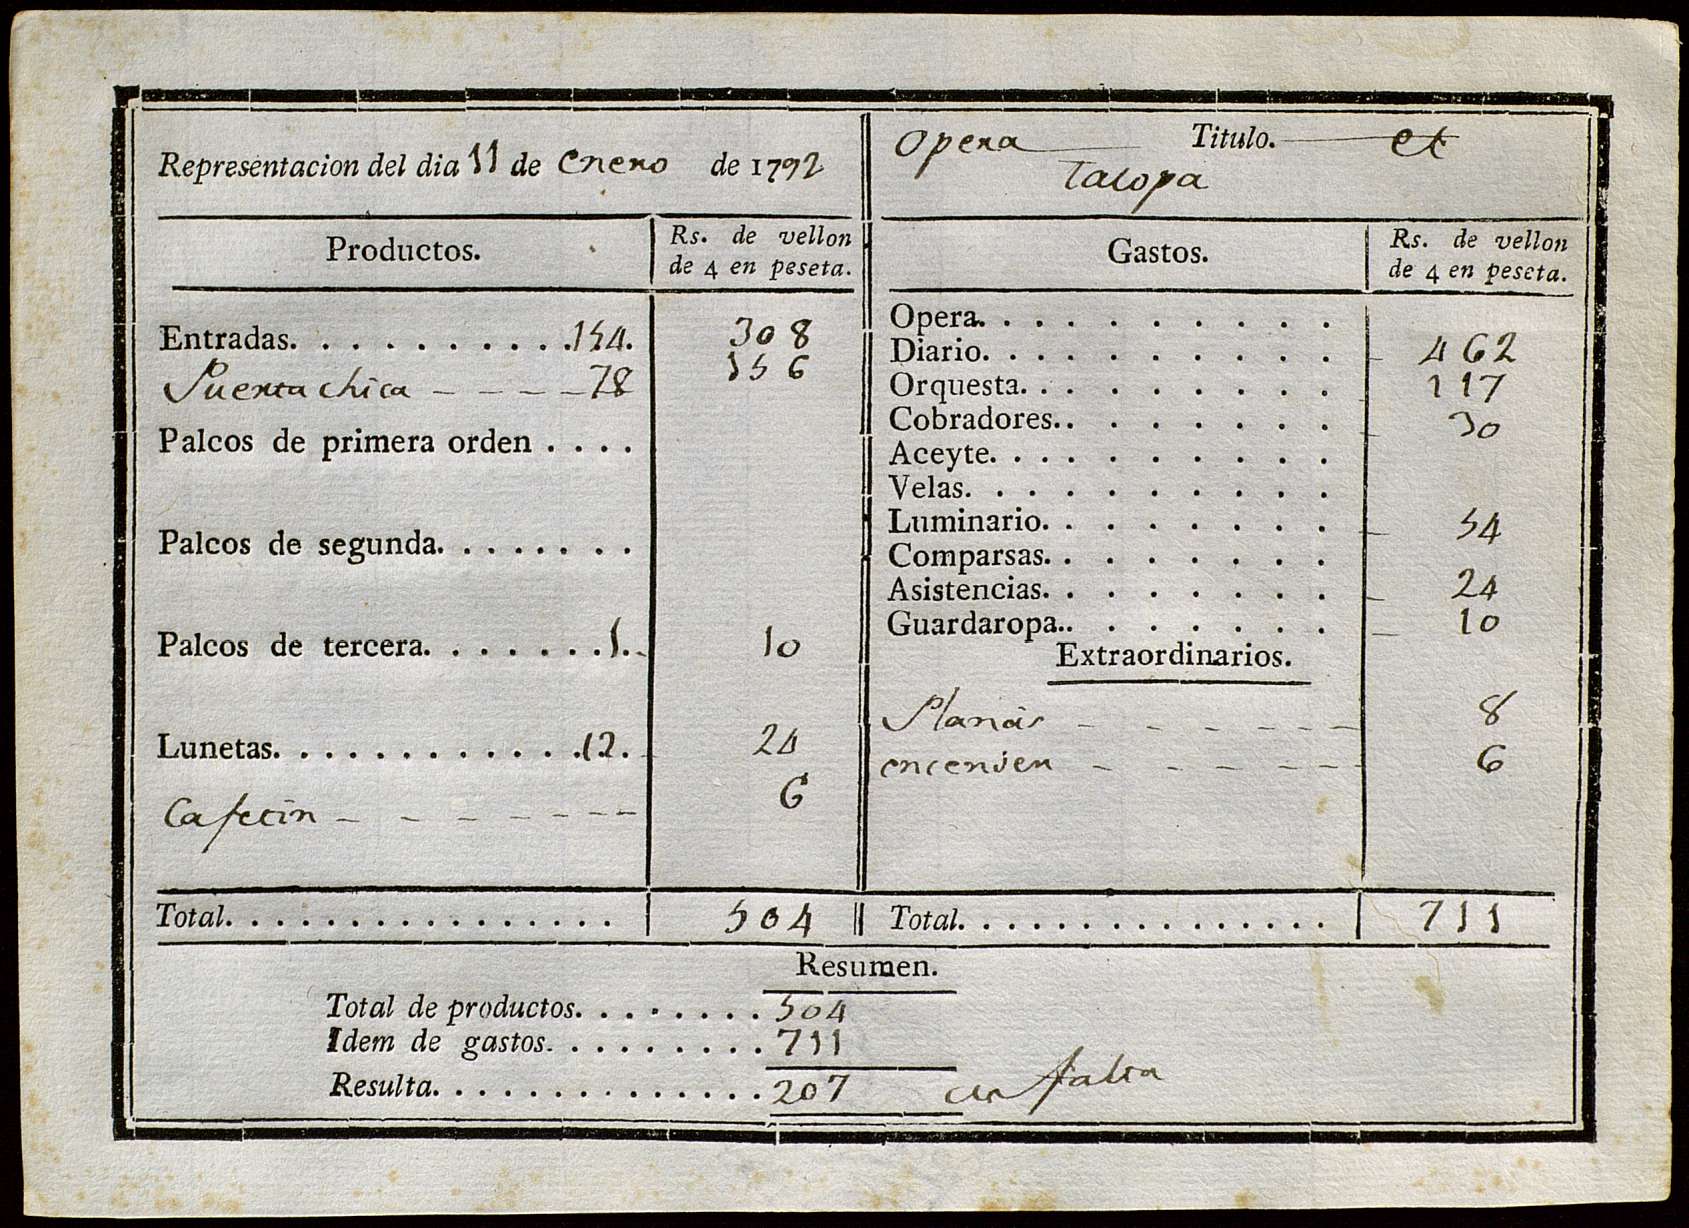 Representacion del dia 11 de enero de 1792
Opera Titulo. el
Tacopa
Productos.
Rs. de vellon
de 4 en peseta.
Entradas. . . . . . . . . . .154. 308
Puerta chica - - - - 78 156
Palcos de primera orden . . . .
Palcos de segunda. . . . . . . .
Palcos de tercera. . . . . . . .1. 10
Lunetas. . . . . . . . . . . . .12. 24
Cafecin - - - - - - - - 6
Total. . . . . . . . . . . . . . . . 504
Gastos.
Rs. de vellon
de 4 en peseta.
Opera. . . . . . . . . .
Diario. . . . . . . . . . 462
Orquesta. . . . . . . . . 117
Cobradores.. . . . . . . 30
Aceyte. . . . . . . . . .
Velas. . . . . . . . . .
Luminario. . . . . . . . 54
Comparsas. . . . . . . .
Asistencias. . . . . . . . 24
Guardaropa.. . . . . . . 10
Extraordinarios.
Planas - - - - - - 8
encender - - - - - - 6
Total. . . . . . . . . . . . . . . 711
Resumen.
Total de productos. . . . . . . . 504
Idem de gastos. . . . . . . . . 711
Resulta. . . . . . . . . . . . . . 207 falta